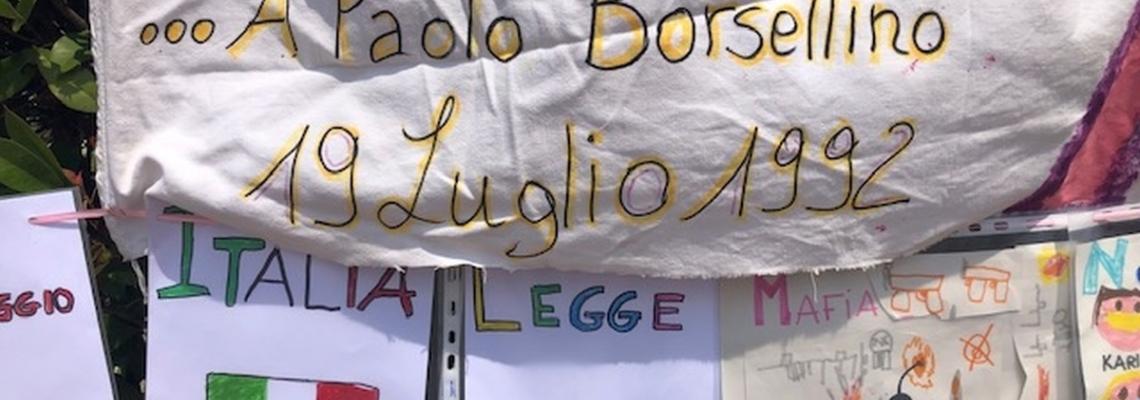 ...A Paolo Borsellino
19 Luglio 1992
GGIO
ITALIA
LEGGE
MAFiA
N
KAR